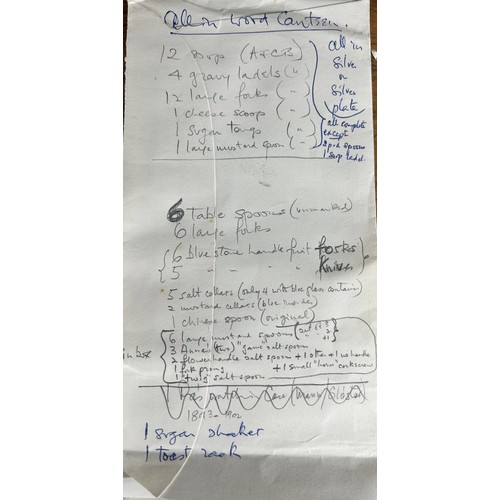 All in wood Canteen.
12 soup (A+CB)
4 gravy ladels (")
12 large forks (")
1 cheese scoop (")
1 sugar tongs (")
1 large mustard spoon (")
all in
silver
or
silver
plate
all complete
except
spoons
1 soup ladel.
6 table spoons (unmarked)
6 large forks
6 blue stone handle fruit forks
5 " " " " Knives
5 salt cellars (only 4 with blue glass contain)
2 mustard cellars (blue insides)
1 chinese spoon (original)
in box
6 large mustard spoons
3 Anne (two) "game" salt spoon
2 flower handle salt spoon + 1 other + 1 no handle
1 prong + 1 small "horn" corkscrew
1 "twig" salt spoon
1
1 sugar shaker
1 toast rack